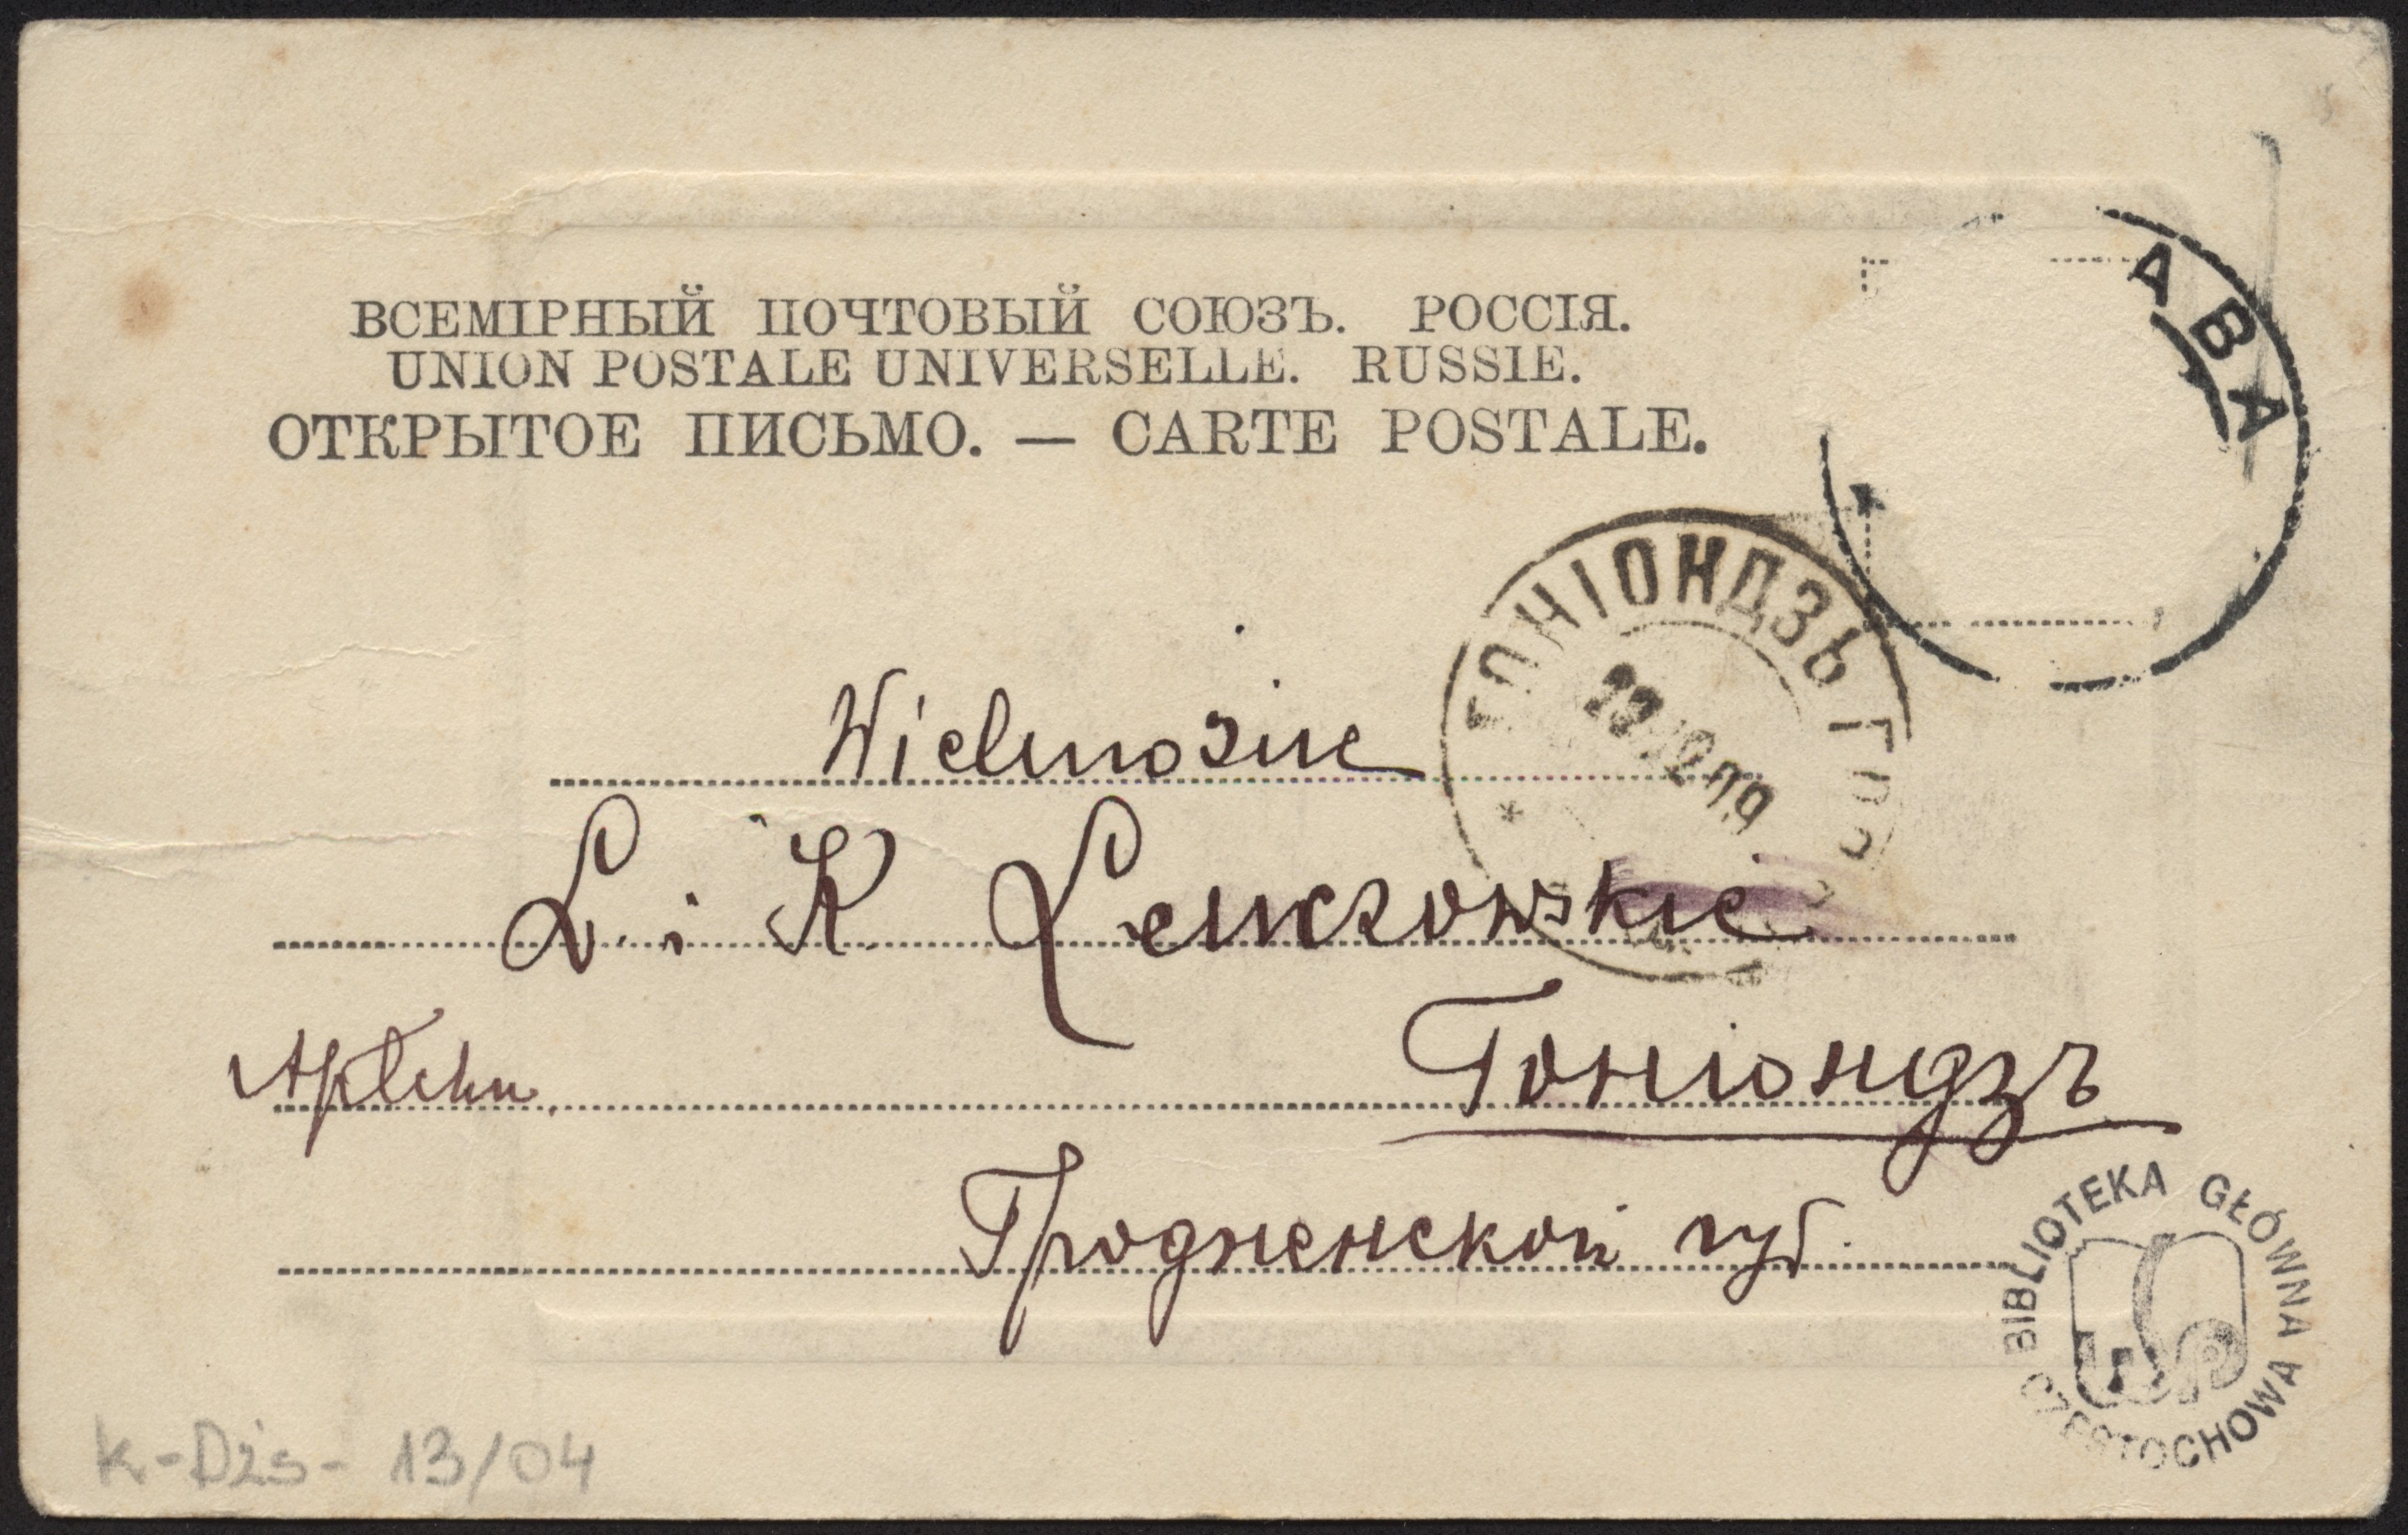 ВСЕМІРНЫЙ ПОЧТОВЫЙ СОЮЗЪ. РОССІЯ.
UNION POSTALE UNIVERSELLE. RUSSIE.
ОТКРЫТОЕ ПИСЬМО. — CARTE POSTALE.
АВА
ГОНІОНДЗЬ ГРОД
Wielmożne
L. i K. Lenczowskie
Apteka
Гоніондзъ
Гродненской губ.
BIBLIOTEKA GŁÓWNA
CZĘSTOCHOWA
K-Dżs- 13/04